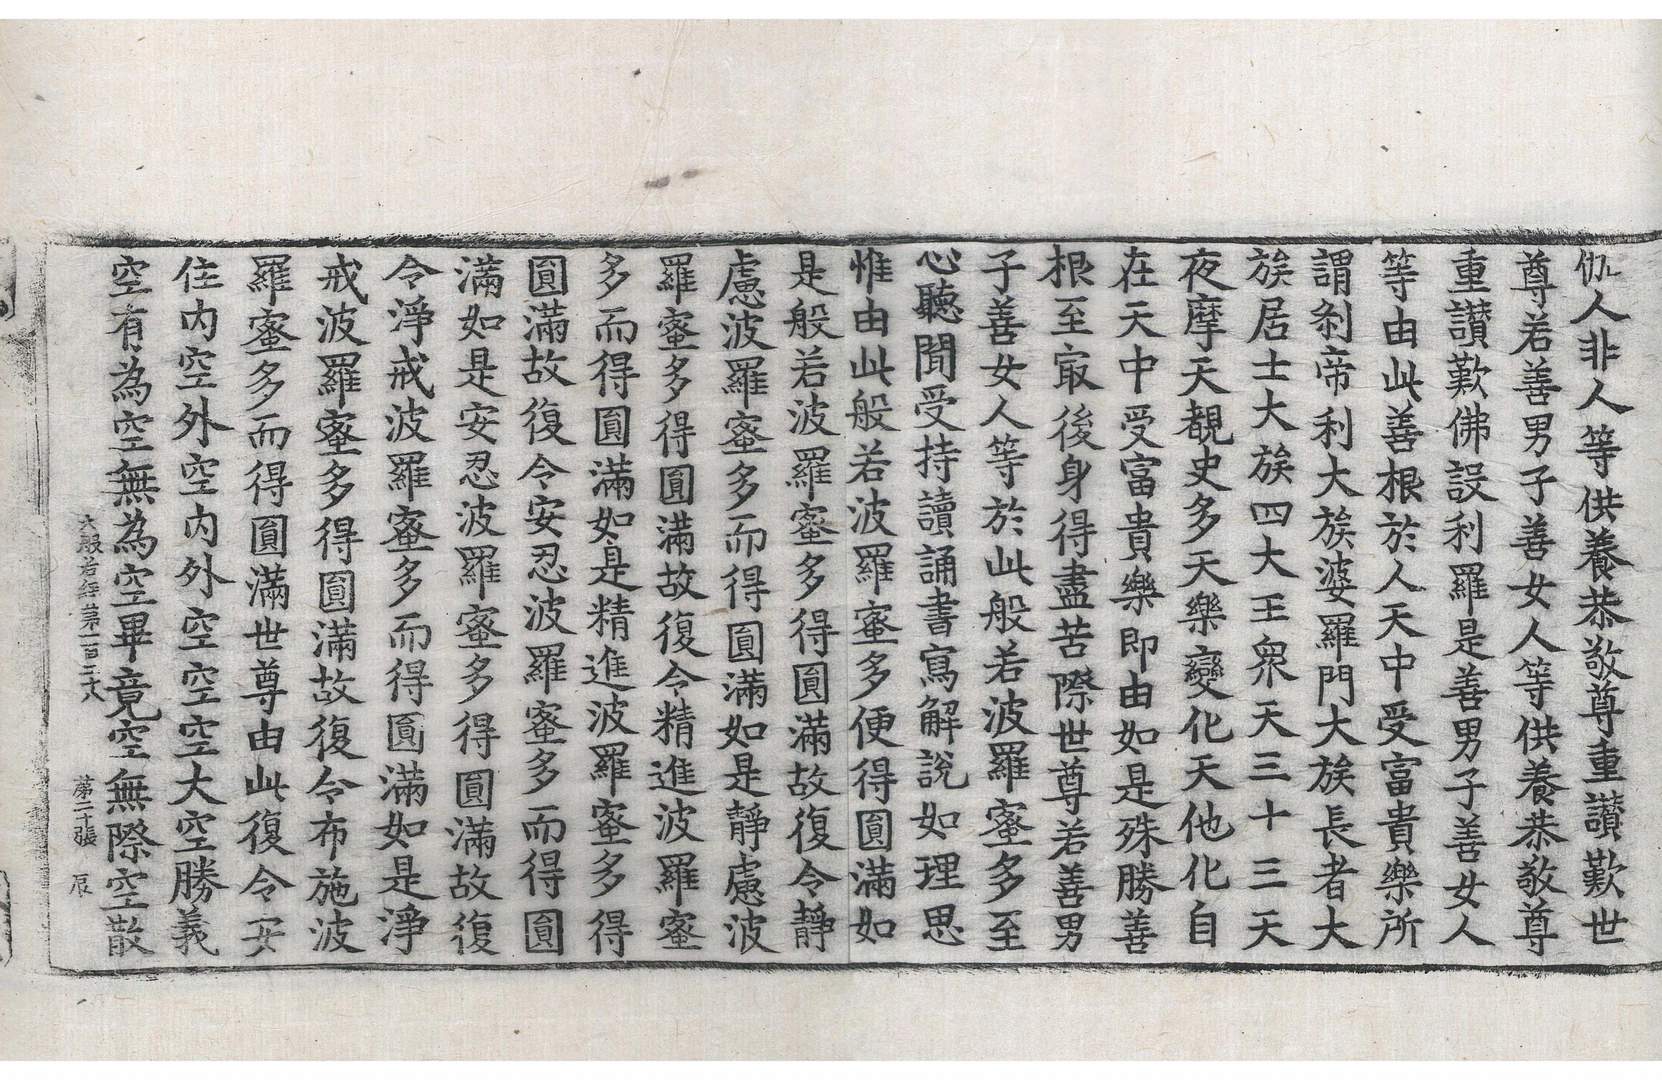 伽人非人等供養恭敬尊重讚歎世
尊若善男子善女人等供養恭敬尊
重讚歎佛設利羅是善男子善女人
等由此善根於人天中受富貴樂所
謂刹帝利大族婆羅門大族長者大
族居士大族四大王眾天三十三天
夜摩天覩史多天樂變化天他化自
在天中受富貴樂即由如是殊勝善
根至㝡後身得盡苦際世尊若善男
子善女人等於此般若波羅蜜多至
心聽聞受持讀誦書寫解說如理思
惟由此般若波羅蜜多便得圓滿如
是般若波羅蜜多得圓滿故復令靜
慮波羅蜜多而得圓滿如是靜慮波
羅蜜多得圓滿故復令精進波羅蜜
多而得圓滿如是精進波羅蜜多得
圓滿故復令安忍波羅蜜多而得圓
滿如是安忍波羅蜜多得圓滿故復
令淨戒波羅蜜多而得圓滿如是淨
戒波羅蜜多得圓滿故復令布施波
羅蜜多而得圓滿世尊由此復令安
住內空外空內外空空空大空勝義
空有為空無為空畢竟空無際空散
大般若經第一百二十八 第二十張 辰